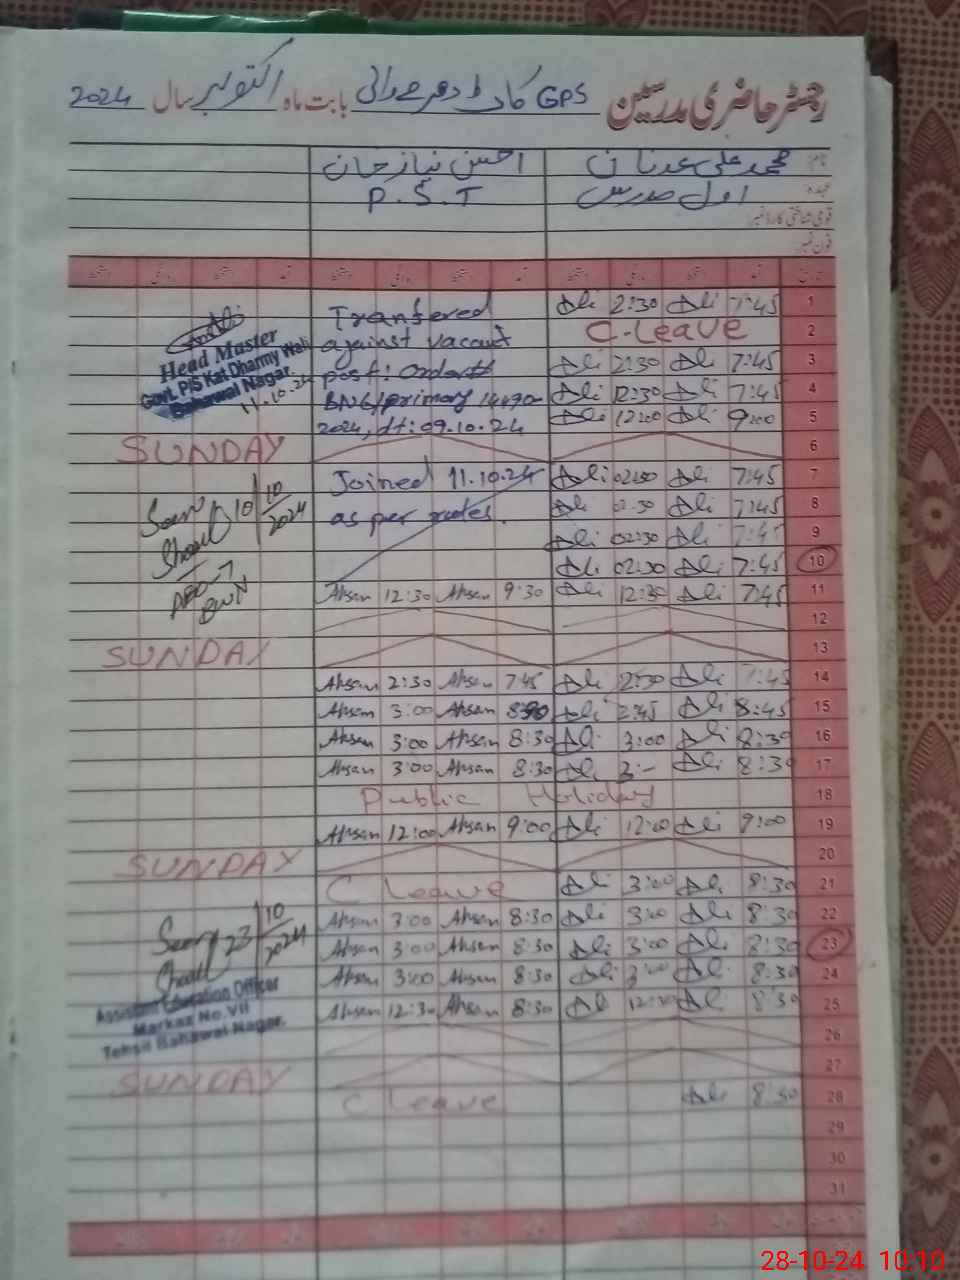 رجسٹر حاضری مدرسین GPS کاٹ دھرمے والی بابت ماہ اکتوبر سال 2024
نام محمد علی عدنان احسن نیاز خان
عہدہ اول مدرس P.S.T
قومی شناختی کارڈ نمبر
فون نمبر
1 7:45 Ali 2:30 Ali
Tranfered
2 C-Leave
against vacant
3 7:45 Ali 2:30 Ali
post: Order#
4 7:45 Ali 12:30 Ali
BNG/primary 14490
5 9:00 Ali 12:00 Ali
2024, dt: 09.10.24
Head Master
Govt. P/S Kat Dharmy Wali
Bahawal Nagar.
11.10.24
6 SUNDAY
7 7:45 Ali 02:30 Ali
Joined 11.10.24
8 7:45 Ali 02:30 Ali
as per rules.
9 7:45 Ali 02:30 Ali
10 7:45 Ali 02:30 Ali
Seen
10/10/2024
11 7:45 Ali 12:30 Ali 9:30 Ahsan 12:30 Ahsan
12
13 SUNDAY
14 7:45 Ali 2:30 Ali 7:45 Ahsan 2:30 Ahsan
15 8:45 Ali 2:45 Ali Ahsan 3:00 Ahsan
16 8:30 Ali 3:00 Ali 8:30 Ahsan 3:00 Ahsan
17 8:30 Ali 3:- Ali 8:30 Ahsan 3:00 Ahsan
18 Public Holiday
19 9:00 Ali 12:00 Ali 9:00 Ahsan 12:00 Ahsan
20 SUNDAY
21 8:30 Ali 3:00 Ali C Leave
22 8:30 Ali 3:00 Ali 8:30 Ahsan 3:00 Ahsan
23 8:30 Ali 3:00 Ali 8:30 Ahsan 3:00 Ahsan
Seen
23/10/2024
24 8:30 Ali 3:00 Ali 8:30 Ahsan 3:00 Ahsan
25 8:30 Ali 12:30 Ali 8:30 Ahsan 12:30 Ahsan
Assistant Education Officer
Markaz No.VII
Tehsil Bahawal Nagar.
26
27 SUNDAY
28 8:30 Ali C Leave
29
30
31
28-10-24 10:10